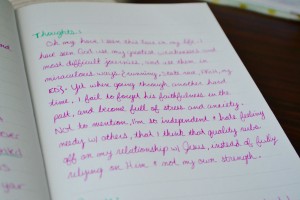 Thoughts:
Oh my have I seen this here in my life. I
have seen God use my greatest weaknesses and
most difficult journies, and use them in
miraculous ways (running, state mom,
loss. Yet when going through another hard
time, I fail to forget his faithfulness in the
past, and become full of stress and anxiety.
Not to mention, I'm so independent & hate feeling
needy w/ others, that I think that quality rubs
off on my relationship w/ Jesus, instead of fully
relying on Him & not my own strength.
your